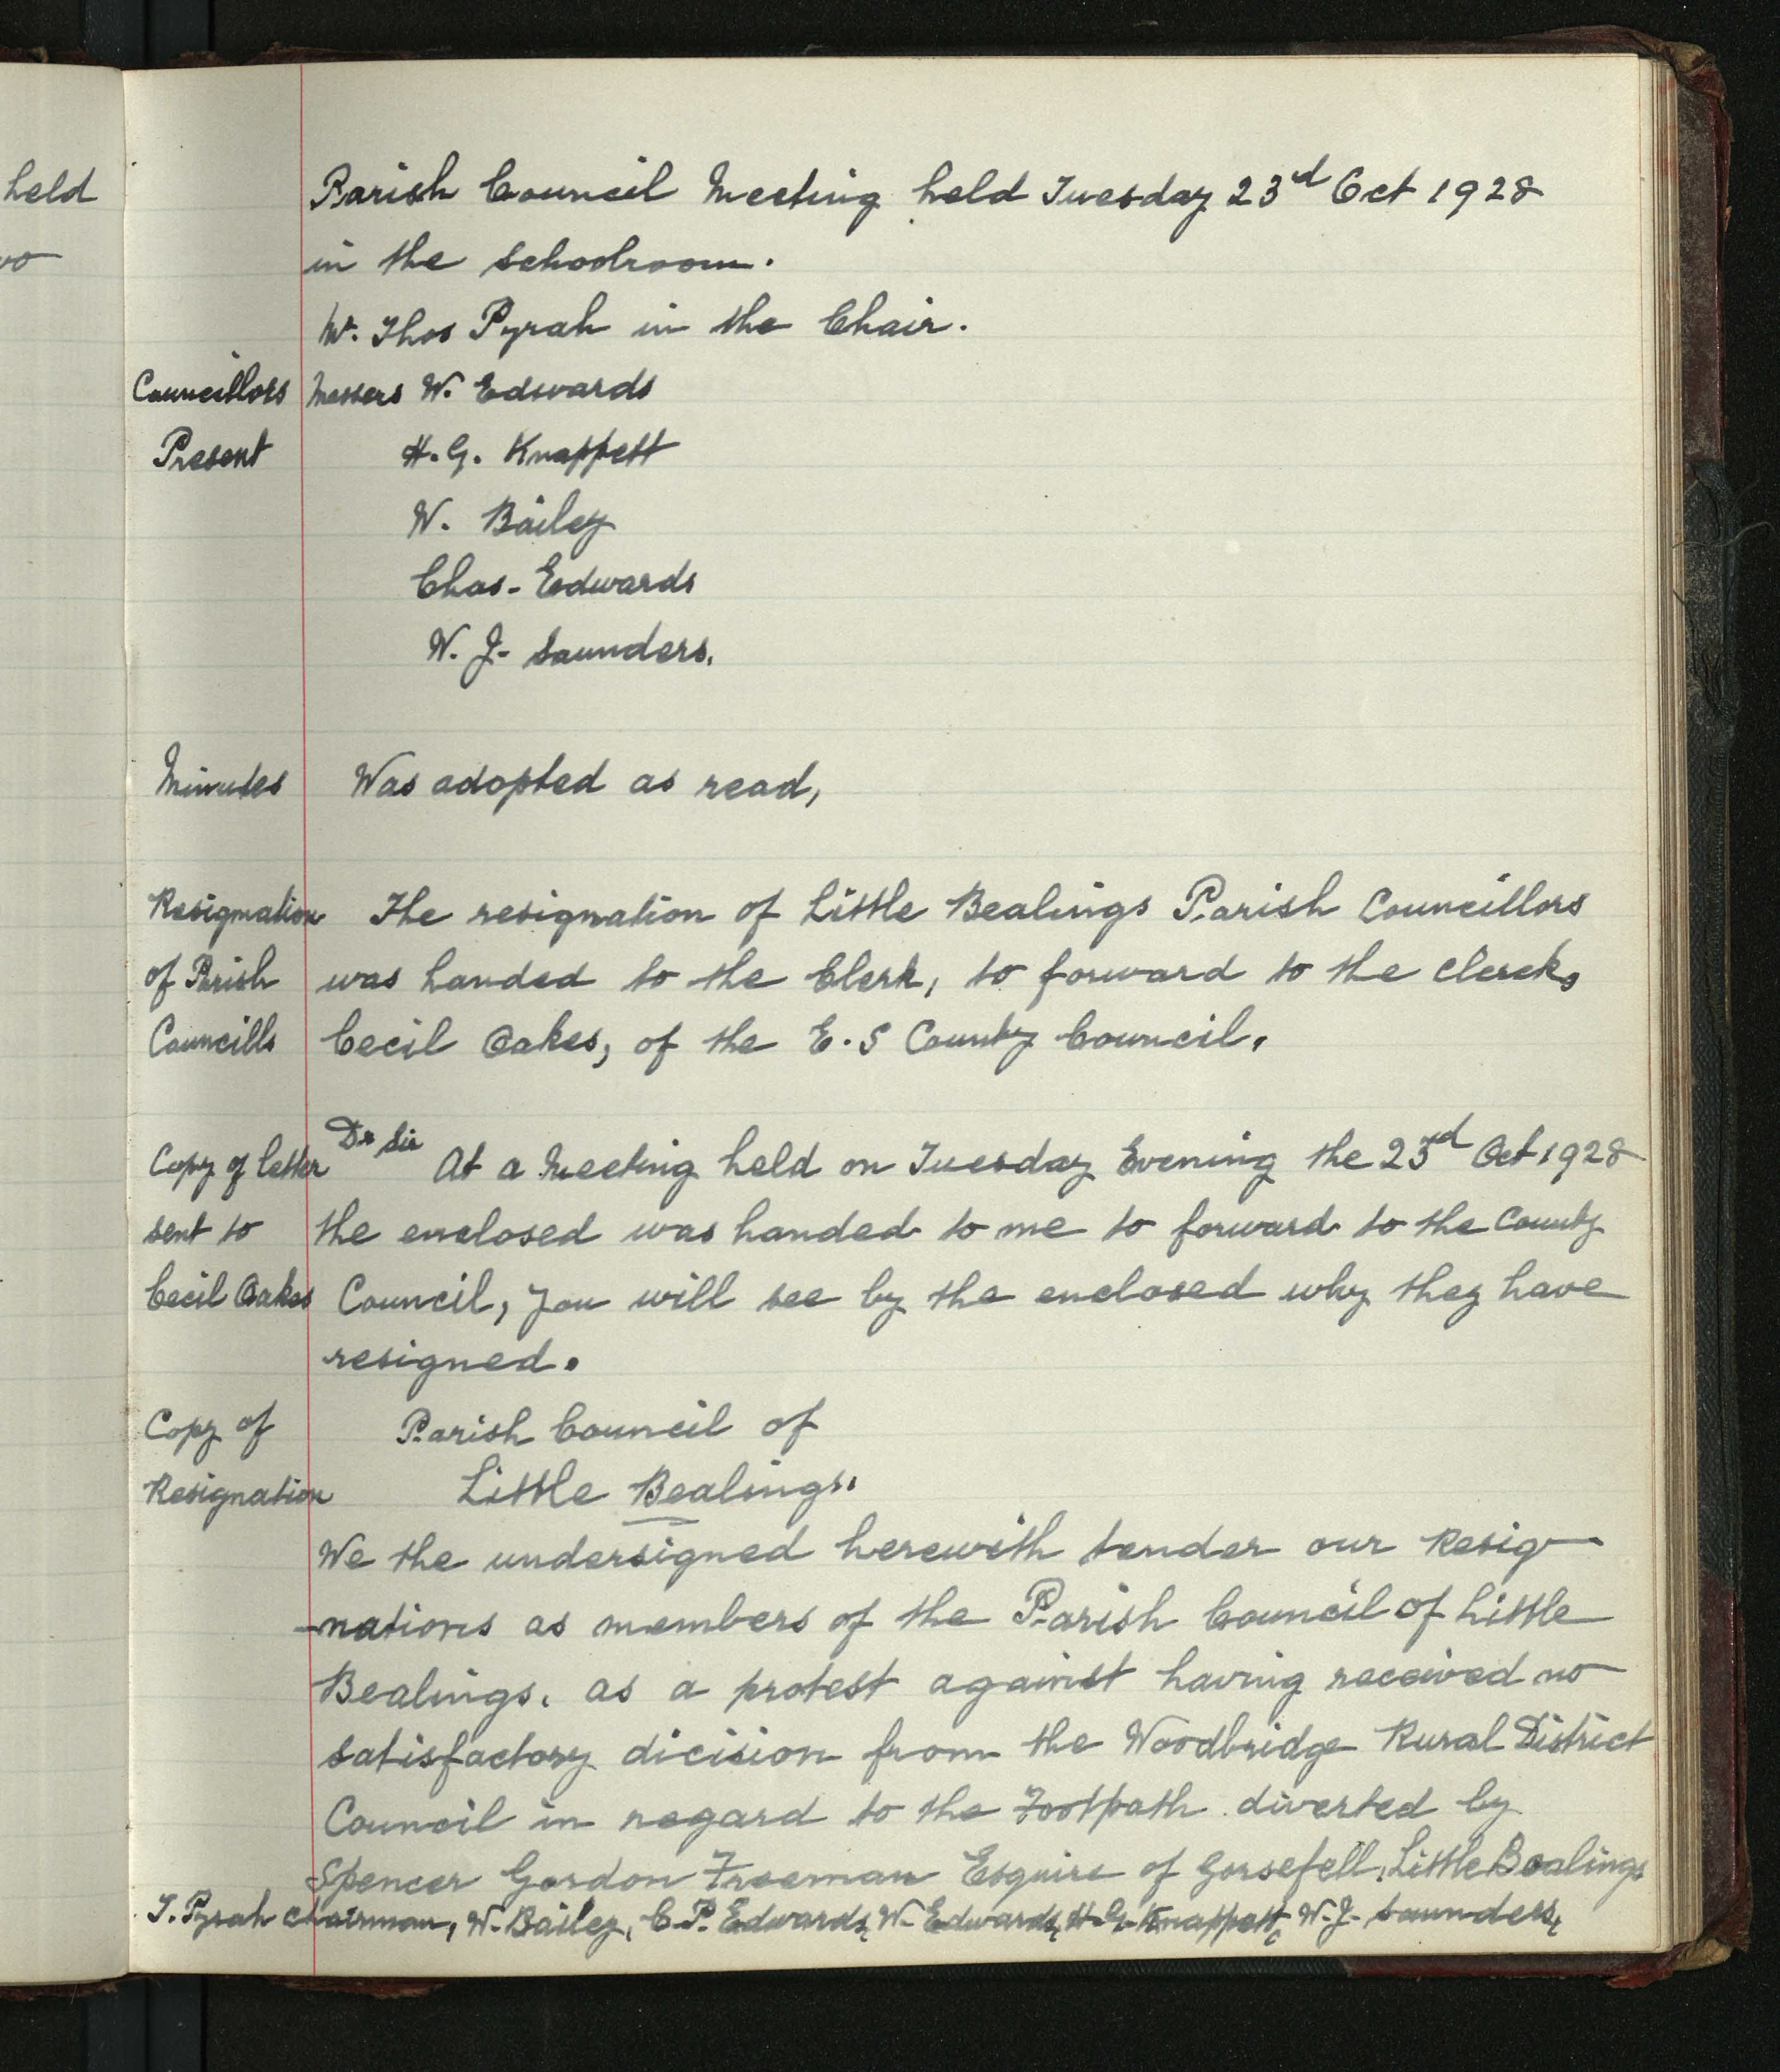 held
Parish Council Meeting held Tuesday 23rd Oct 1928
in the schoolroom.
Mr. Thos Pyrah in the Chair.
Councillors Messers W. Edwards
Present H. G. Knappett
W. Bailey
Chas- Edwards
W. J- Saunders.
Minutes Was adopted as read,
Resignation The resignation of Little Bealings Parish Councillors
of Parish was handed to the Clerk, to forward to the clerek,
Councills Cecil Oakes, of the E. S County Council.
Copy of letter Dr Sir At a Meeting held on Tuesday Evening the 23rd Oct 1928
sent to the enclosed was handed to me to forward to the County
Cecil Oakes Council, you will see by the enclosed why they have
resigned.
Copy of Parish Council of
Resignation Little Bealings.
We the undersigned herewith tender our Resig-
-nations as members of the Parish Council of Little
Bealings. as a protest against having received no
satisfactory dicision from the Woodbridge Rural District
Council in regard to the Footpath diverted by
Spencer Gordon Freeman Esquire of Gorsefell, Little Bealings
T. Pyrah chairman, W. Bailey, C. P. Edwards, W. Edwards, H. G. Knappett, W. J- Saunders,